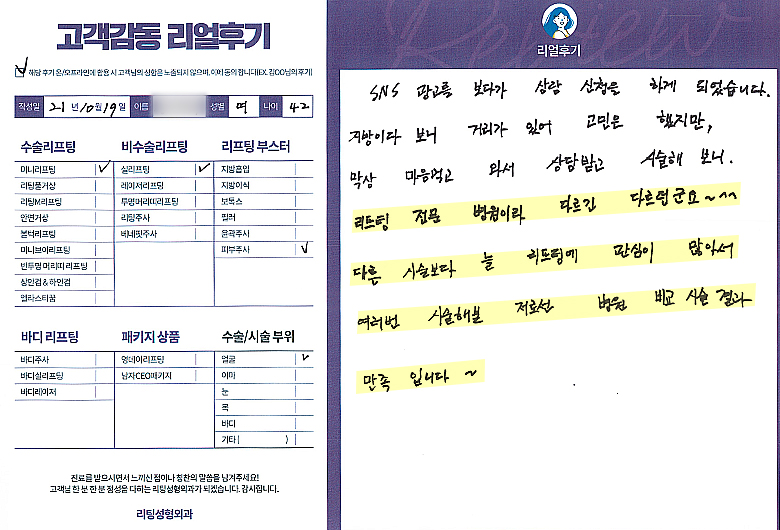 고객감동 리얼후기
해당 후기 온/오프라인에 활용 시 고객님의 신상은 노출되지 않으며, 이에 동의 합니다(EX. 김OO님의 후기)
작성일 21 년 10 월 19 일 이름 성별 여 나이 42
수술리프팅 비수술리프팅 리프팅 부스터
미니리프팅 실리프팅 지방흡입
리팅풀거상 레이저리프팅 지방이식
리팅M리프팅 투명머리띠리프팅 보톡스
안면거상 리팅주사 필러
본택리프팅 베네핏주사 윤곽주사
미니브이리프팅 피부주사
반투명 머리띠 리프팅
상안검 & 하안검
엘라스티꿈
바디 리프팅 패키지 상품 수술/시술 부위
바디주사 영데이리프팅 얼굴
바디실리프팅 남자CEO패키지 이마
바디레이저 눈
목
바디
기타 ( )
진료를 받으시면서 느끼신 점이나 칭찬의 말씀을 남겨주세요!
고객님 한 분 한 분 정성을 다하는 리팅성형외과가 되겠습니다. 감사합니다.
리팅성형외과
Review
리얼후기
SNS 광고를 보다가 상담 신청을 하게 되었습니다.
지방이다 보니 거리가 있어 고민은 했지만,
막상 마음먹고 와서 상담받고 시술해 보니.
리프팅 전문 병원이라 다르긴 다르렁군요~^^
다른 시술보다 늘 리프팅에 관심이 많아서
여러번 시술해본 저로선 병원 비교 시술 결과
만족 입니다 ~